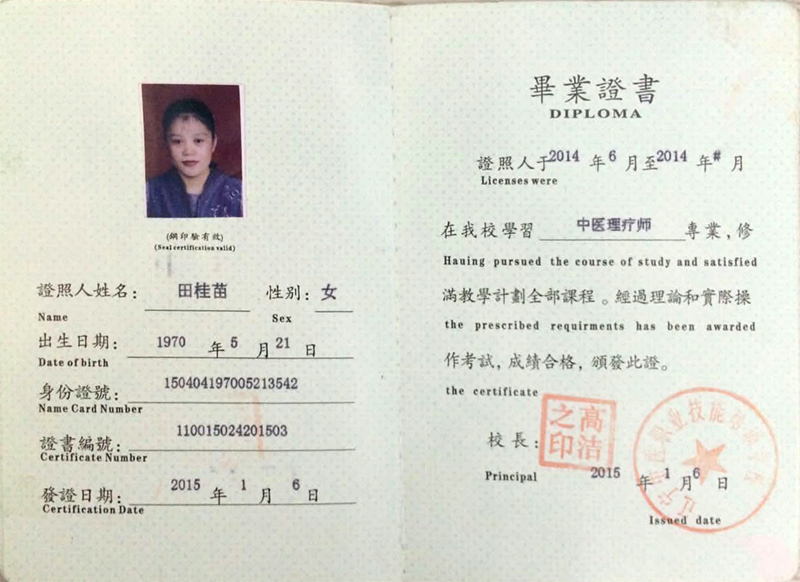 (鋼印驗有效)
(Seal certification valid)
證照人姓名: 田桂苗 性別: 女
Name Sex
出生日期: 1970 年 5 月 21 日
Date of birth
身份證號: 150404197005213542
Name Card Number
證書編號: 110015024201503
Certificate Number
發證日期: 2015 年 1 月 6 日
Certification Date
畢業證書
DIPLOMA
證照人于2014 年 6 月至2014 年# 月
Licenses were
在我校學習 中医理疗师 專業, 修
Hauing pursued the course of study and satisfied
滿教學計劃全部課程。經過理論和實際操
the prescribed requirments has been awarded
作考試, 成績合格, 頒發此證。
the certificate
校長: 高洁之印
Principal 2015 年 1 月 6 日
Issued date